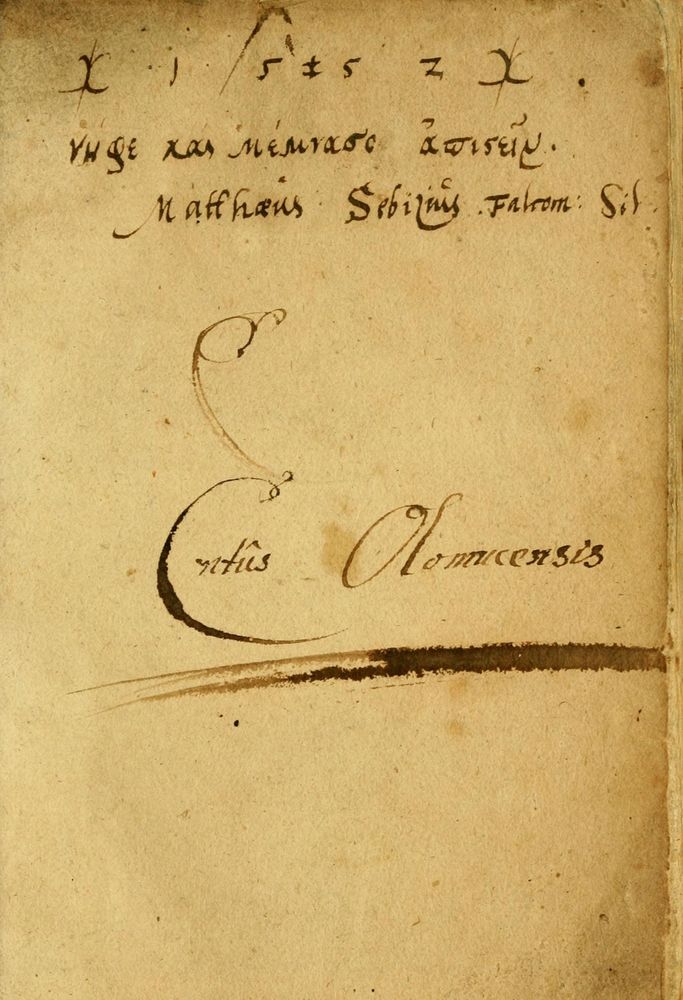 1 5 5 2
νηφε και μέμνασο ἀπιστεῖν.
Matthæus Sebizius. Falcom: Sil.
Entûs Olomucensis